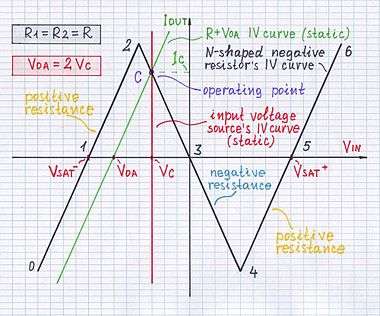 IOUT
R1 = R2 = R
R+VOA IV curve (static)
2
IC
N-shaped negative
resistor's IV curve
6
VOA = 2 VC
C
operating point
positive
resistance
input voltage
source's IV curve
(static)
1
3
5
VIN
VSAT-
VOA
VC
VSAT+
negative
resistance
positive
resistance
0
4